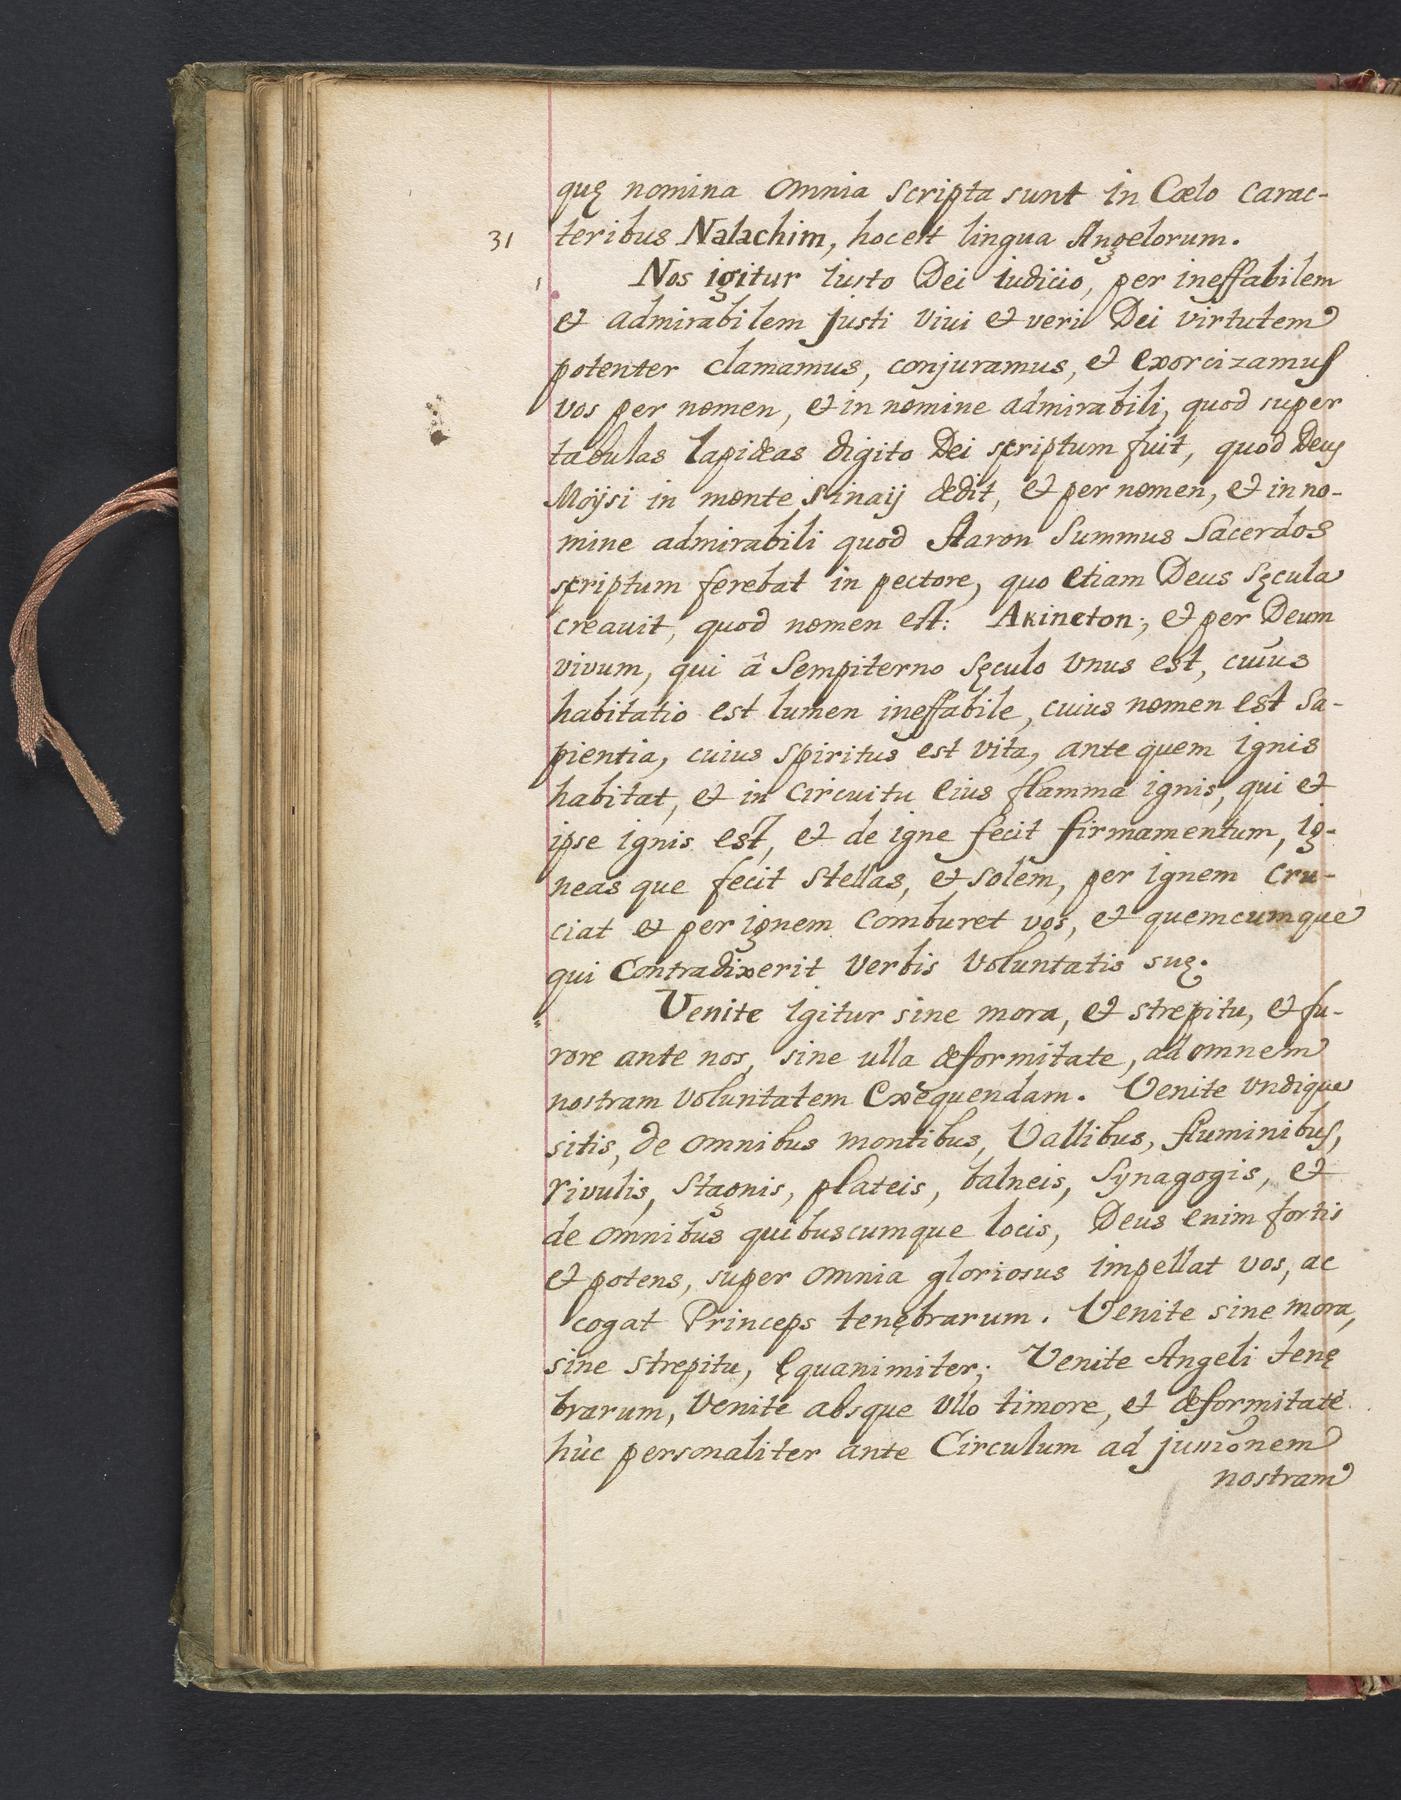 quę nomina omnia scripta sunt in Cœlo carac-
31 teribus Nalachim, hoc est lingua Angelorum.
Nos igitur iusto Dei iudicio, per ineffabilem
et admirabilem justi vivi et veri Dei virtutem
potenter clamamus, conjuramus, et exorcizamus
vos per nomen, et in nomine admirabili, quod super
tabulas lapideas digito Dei scriptum fuit, quod Deus
Moÿsi in monte Sinaij dedit, et per nomen, et in no-
mine admirabili quod Aaron Summus Sacerdos
scriptum ferebat in pectore, quo etiam Deus sęcula
creauit, quod nomen est: Akineton; et per Deum
vivum, qui â sempiterno sęculo vnus est, cuius
habitatio est lumen ineffabile, cuius nomen est sa-
pientia, cuius spiritus est vita, ante quem ignis
habitat, et in circuitu eius flamma ignis, qui et
ipse ignis est, et de igne fecit firmamentum, ig-
neas que fecit stellas, et solem, per ignem cru-
ciat et per ignem comburet vos, et quemcumque
qui contradixerit verbis voluntatis suę.
Venite igitur sine mora, et strepitu, et fu-
rore ante nos, sine ulla deformitate, ad omnem
nostram voluntatem exequendam. Venite vndique
sitis, de omnibus montibus, Vallibus, fluminibus,
rivulis, stagnis, plateis, balneis, synagogis, et
de omnibus quibuscumque locis, Deus enim fortis
et potens, super omnia gloriosus impellat vos, ac
cogat Princeps tenębrarum. Venite sine mora,
sine strepitu, ęquanimiter; Venite Angeli tenę
brarum, venite absque ullo timore, et deformitate
hùc personaliter ante Circulum ad jussionem
nostram